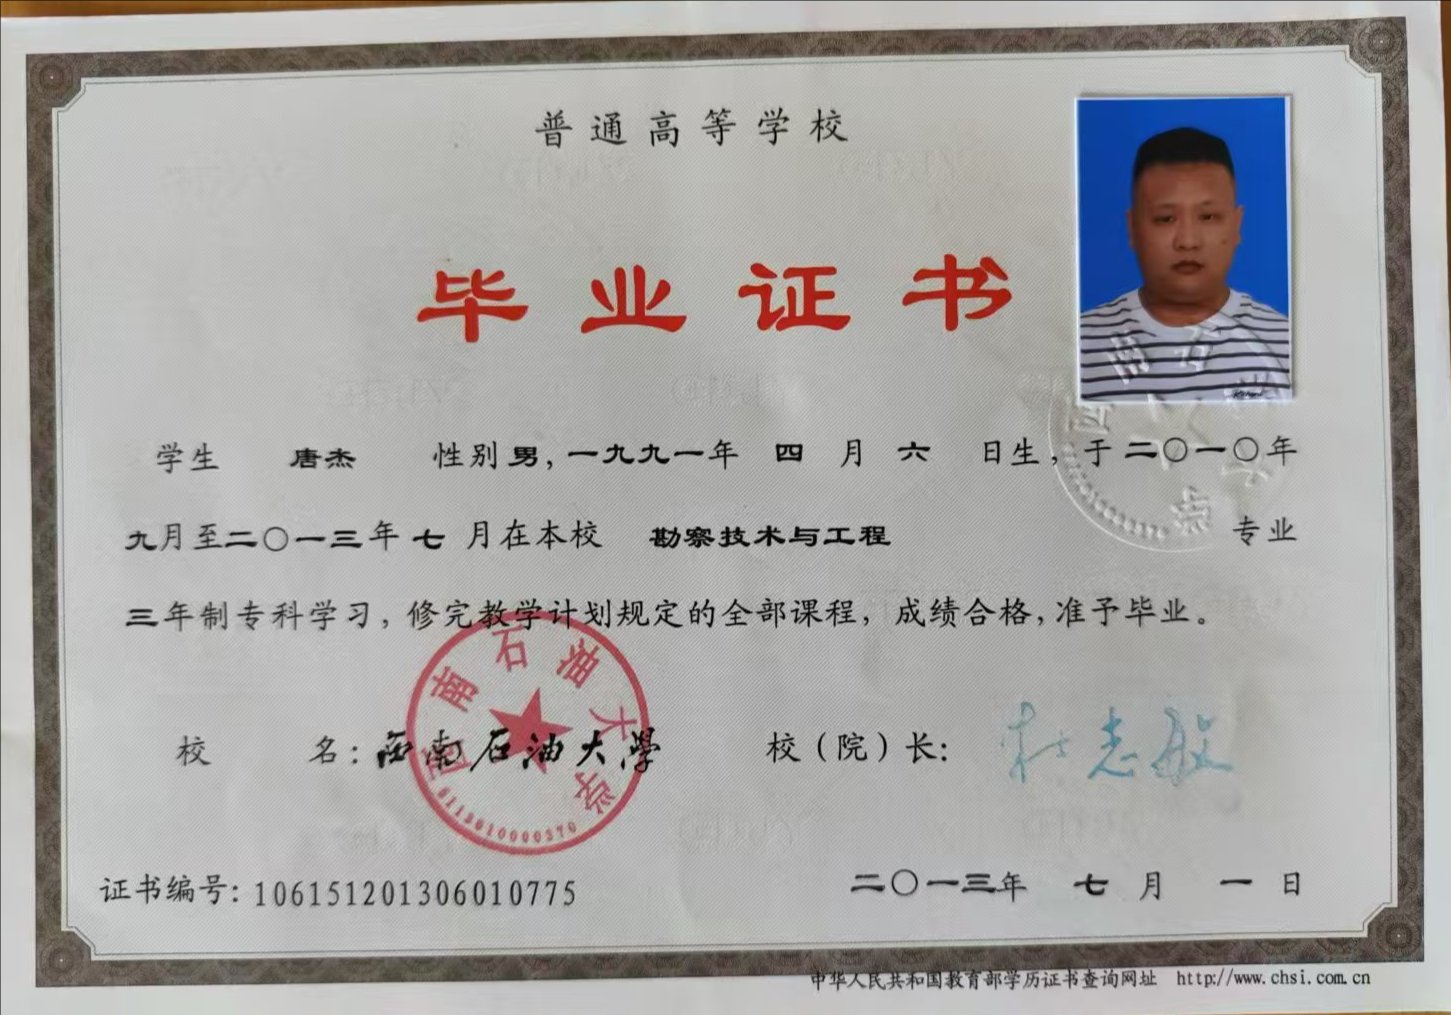 普通高等学校
毕业证书
学生 唐杰 性别 男，一九九一年 四 月 六 日生，于 二〇一〇年
九月至二〇一三年 七 月在本校 勘察技术与工程 专业
三年制专科学习，修完教学计划规定的全部课程，成绩合格，准予毕业。
西南石油大学
校 名：西南石油大學 校（院）长：杜志敏
证书编号：106151201306010775
二〇一三年 七 月 一 日
中华人民共和国教育部学历证书查询网址 http://www.chsi.com.cn